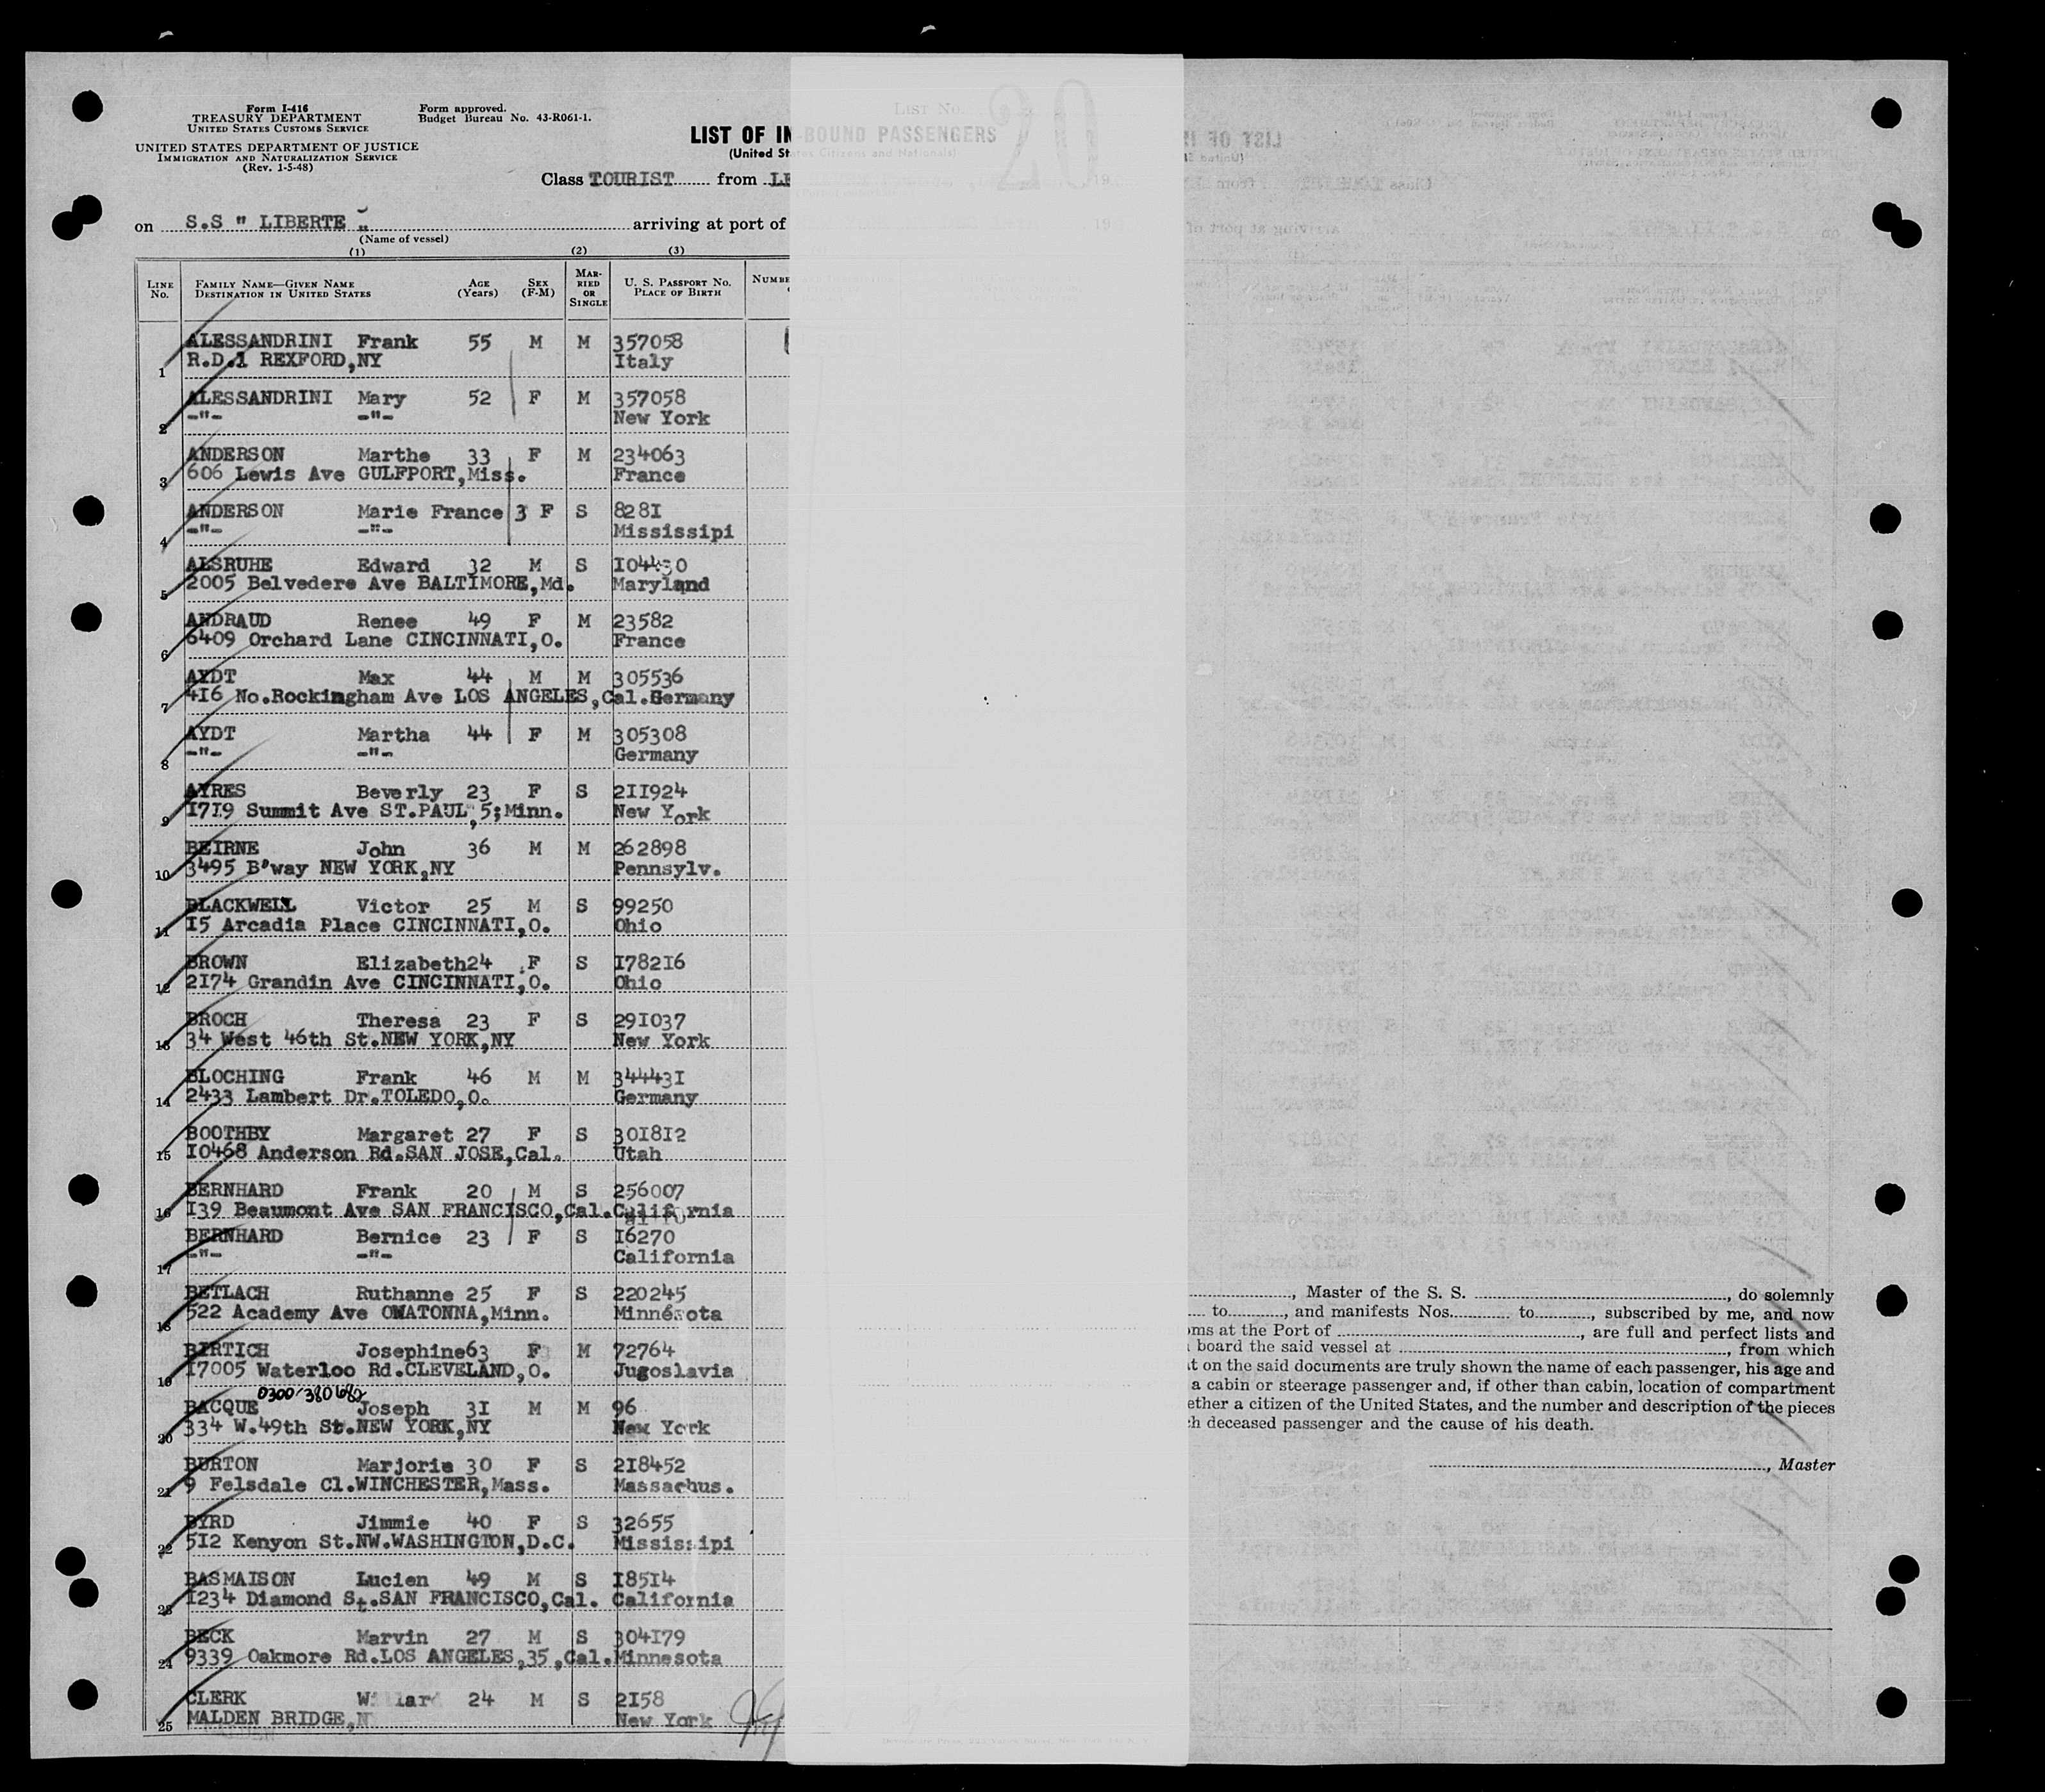 Form I-416
TREASURY DEPARTMENT
UNITED STATES CUSTOMS SERVICE
UNITED STATES DEPARTMENT OF JUSTICE
IMMIGRATION AND NATURALIZATION SERVICE
(Rev. 1-5-48)
Form approved.
Budget Bureau No. 43-R061-1.
LIST No. 20
LIST OF IN-BOUND PASSENGERS
(United States Citizens and Nationals)
Class TOURIST from LE
on S.S " LIBERTE " arriving at port of
(Name of vessel)
(1) (2) (3)
LINE No. FAMILY NAME—GIVEN NAME DESTINATION IN UNITED STATES AGE (Years) SEX (F-M) MARRIED OR SINGLE U. S. PASSPORT No. PLACE OF BIRTH
ALESSANDRINI Frank 55 M M 357058
1 R.D.1 REXFORD,NY Italy
ALESSANDRINI Mary 52 F M 357058
2 -"- -"- New York
ANDERSON Marthe 33 F M 234063
3 606 Lewis Ave GULFPORT,Miss. France
ANDERSON Marie France 3 F S 8281
4 -"- -"- Mississipi
ALSRUHE Edward 32 M S 104430
5 2005 Belvedere Ave BALTIMORE,Md. Maryland
ANDRAUD Renee 49 F M 23582
6 6409 Orchard Lane CINCINNATI,O. France
AYDT Max 44 M M 305536
7 416 No.Rockingham Ave LOS ANGELES,Cal.Germany
AYDT Martha 44 F M 305308
8 -"- -"- Germany
AYRES Beverly 23 F S 211924
9 1719 Summit Ave ST.PAUL,5;Minn. New York
BEIRNE John 36 M M 262898
10 3495 B'way NEW YORK,NY Pennsylv.
BLACKWELL Victor 25 M S 99250
11 15 Arcadia Place CINCINNATI,O. Ohio
BROWN Elizabeth 24 F S 178216
12 2174 Grandin Ave CINCINNATI,O. Ohio
BROCH Theresa 23 F S 291037
13 34 West 46th St.NEW YORK,NY New York
BLOCHING Frank 46 M M 344431
14 2433 Lambert Dr.TOLEDO,O. Germany
BOOTHBY Margaret 27 F S 301812
15 10468 Anderson Rd.SAN JOSE,Cal. Utah
BERNHARD Frank 20 M S 256007
16 139 Beaumont Ave SAN FRANCISCO,Cal.California
BERNHARD Bernice 23 F S 16270
17 -"- -"- California
BETLACH Ruthanne 25 F S 220245
18 522 Academy Ave OWATONNA,Minn. Minnésota
BIRTICH Josephine 63 F M 72764
19 17005 Waterloo Rd.CLEVELAND,O. Jugoslavia
0300/380682
BACQUE Joseph 31 M M 96
20 334 W.49th St.NEW YORK,NY New York
BURTON Marjorie 30 F S 218452
21 9 Felsdale Cl.WINCHESTER,Mass. Massachus.
BYRD Jimmie 40 F S 32655
22 512 Kenyon St.NW.WASHINGTON,D.C. Mississipi
BASMAISON Lucien 49 M S 18514
23 1234 Diamond St.SAN FRANCISCO,Cal. California
BECK Marvin 27 M S 304179
24 9339 Oakmore Rd.LOS ANGELES,35,Cal.Minnesota
CLERK Willard 24 M S 2158
25 MALDEN BRIDGE,N New York
, Master of the S. S. , do solemnly
to , and manifests Nos. to , subscribed by me, and now
at the Port of , are full and perfect lists and
board the said vessel at , from which
on the said documents are truly shown the name of each passenger, his age and
a cabin or steerage passenger and, if other than cabin, location of compartment
a citizen of the United States, and the number and description of the pieces
deceased passenger and the cause of his death.
, Master